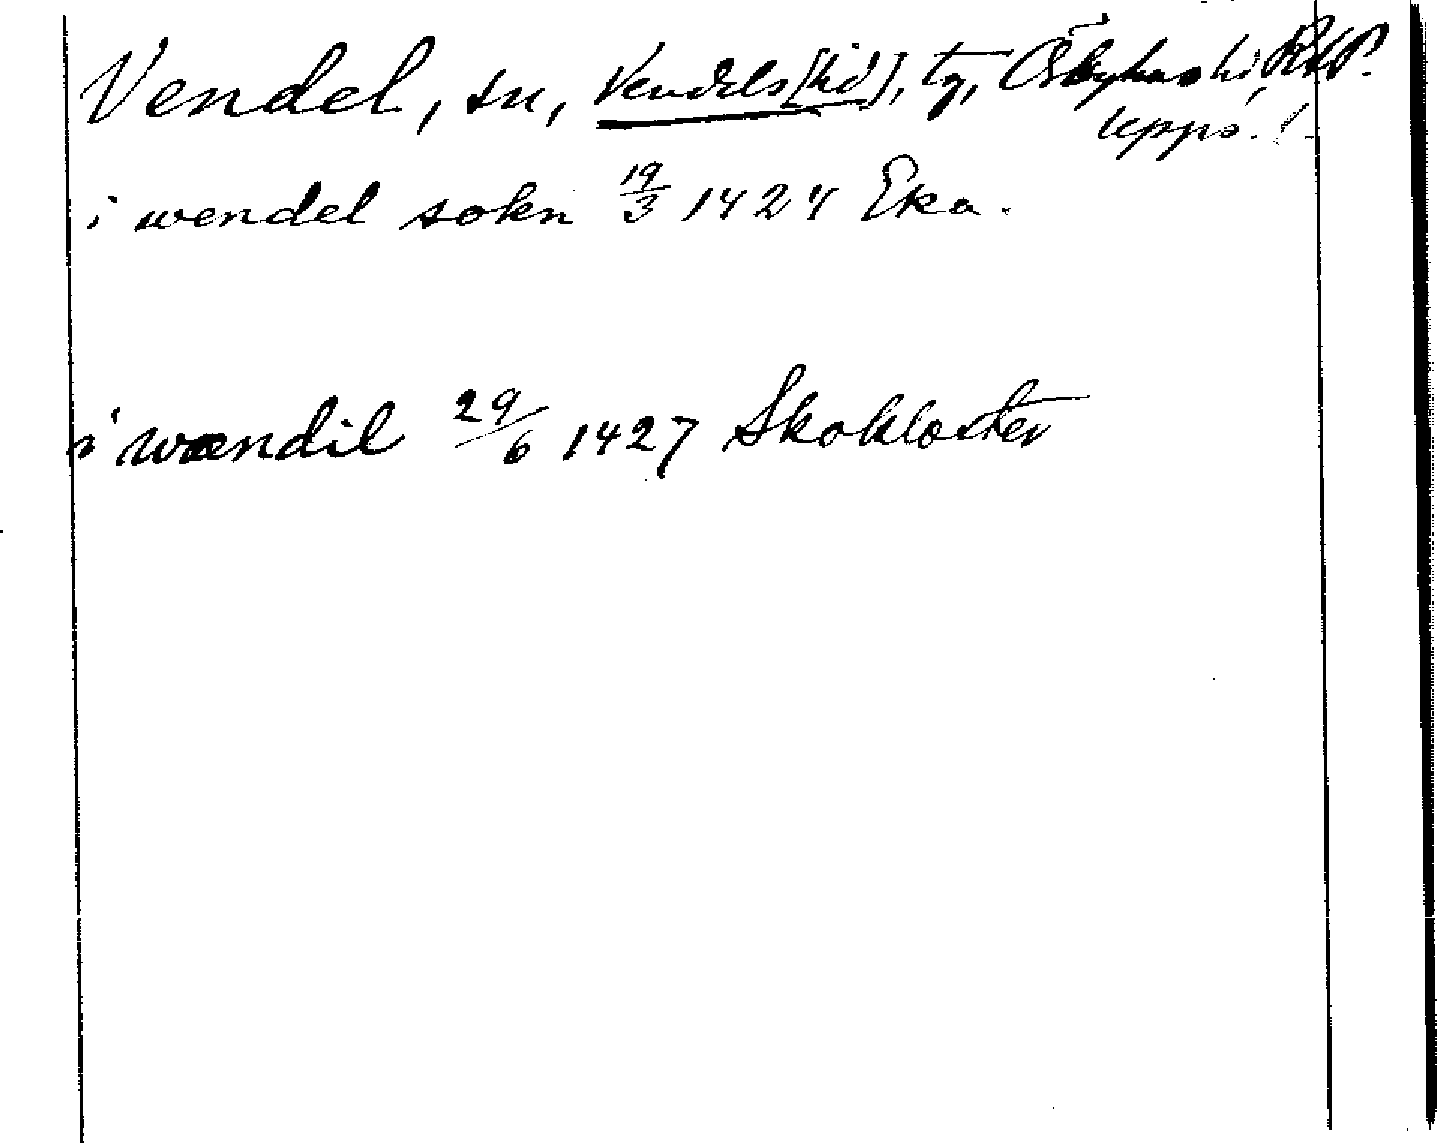 Vendel, sn, Vendels[tid], tg, Örbyhus hd, RAP.
Upps. l.
i wendel sokn 19/3 1424 Eka.
i wændil 29/6 1427 Skokloster